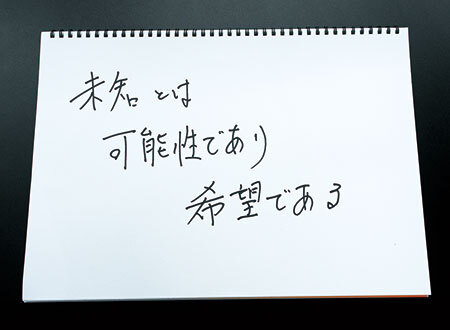 未知とは
可能性であり
希望である